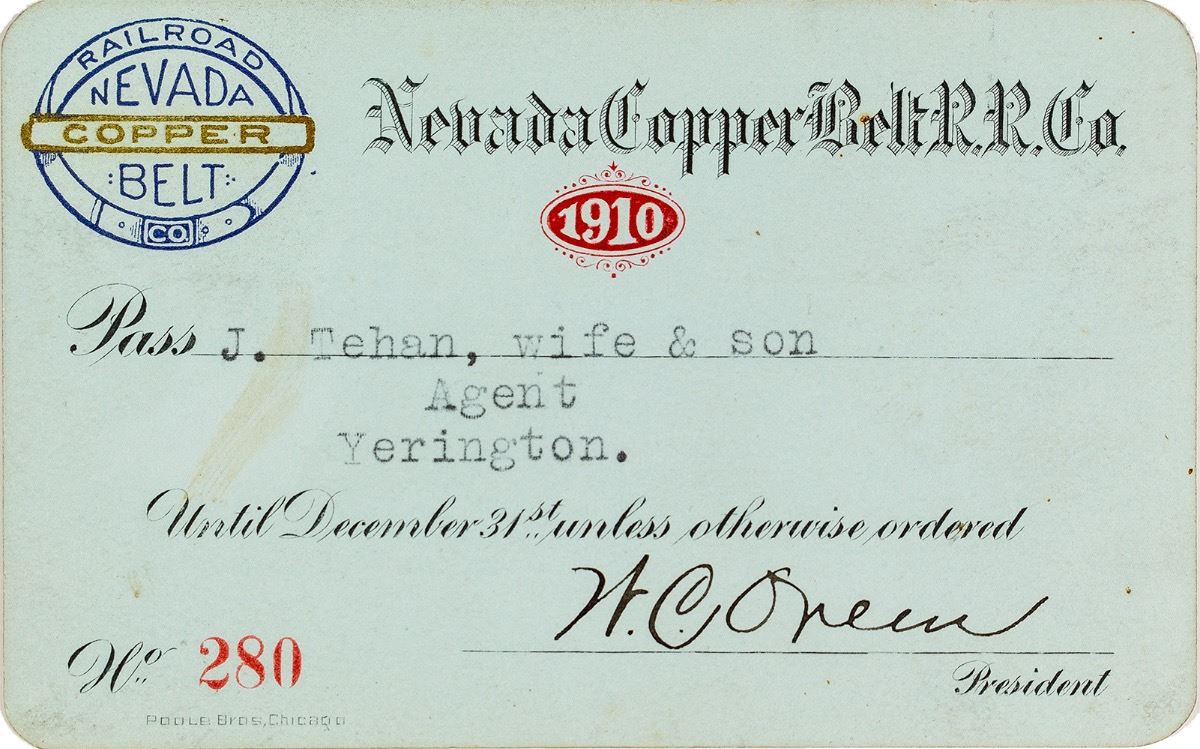 RAILROAD
NEVADA
COPPER
BELT
CO.
Nevada Copper Belt R.R. Co.
1910
Pass J. Tehan, wife & son
Agent
Yerington.
Until December 31st unless otherwise ordered
W. C. Oreen
President
No. 280
Poole Bros, Chicago